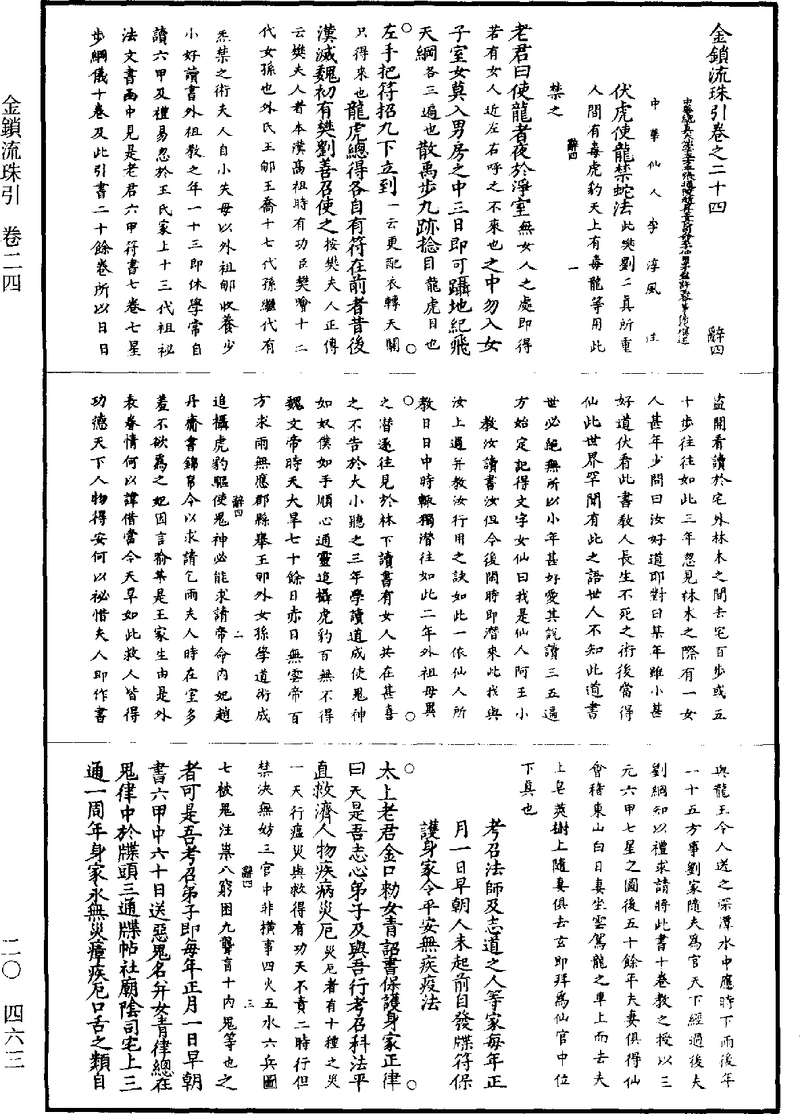 金鎖流珠引卷之二十四
辭四
中華仙人李淳風注
伏虎使龍禁蛇法此樊劉二真所重
人間有毒虎豹天上有毒龍等用此
禁之
辭四 一
老君曰使龍者夜於淨室無女人之處即得
若有女人近左右呼之不來也之中勿入女
子室女莫入男房之中三日即可躡地紀飛
天綱各三遍也散禹步九跡捻目龍虎目也
左手把符招九下立到一云更配衣轉天關
只得來也龍虎總得各自有符在前者昔後
漢滅魏初有樊劉善召使之按樊夫人正傳
云樊夫人者本漢高祖時有功臣樊噲十二
代女孫也外氏王郇王喬十七代孫繼代有
炁禁之術夫人自小失母以外祖郇收養少
小好讀書外祖教之年一十三即休學常自
讀六甲及禮易忽於王氏家上十三代祖祕
法文書函中見是老君六甲符書七卷七星
步綱儀十卷及此引書二十餘卷所以日日
盜開看讀於宅外林木之間去宅百步或五
十步往往如此三年忽見林木之際有一女
人甚年少問曰汝好道耶對曰某年雖小甚
好道伏看此書教人長生不死之術後當得
仙此世界罕聞有此之語世人不知此道書
世必絕無所以小年甚好愛其說讀三五遍
方始定記得文字女仙曰我是仙人阿王小
教汝讀書汝但今後閑時即潛來此我與
汝上過并教汝行用之訣如此一依仙人所
教日日中時輒獨潛往如此二年外祖母異
之潛逐往見於林下讀書有女人共在甚喜
之不告於大小聽之三年學讀道成使鬼神
如奴僕如手順心通靈追攝虎豹百無不得
魏文帝時天大旱七十餘日赤日無雲帝百
方求雨無應郡縣舉王郇外女孫學道術成
辭四 二
追攝虎豹驅使鬼神必能求請帝命內妃趙
丹齋書錦帛令以求請乞雨夫人時在室多
羞不欲為之妃因言喻某是王家生由是外
表眷情何以諱惜當今天旱如此救人皆得
功德天下人物得安何以祕惜夫人即作書
與龍王令人送之深潭水中應時下雨後年
一十五方事劉家隨夫為官天下經過後夫
劉綱知以禮求請將此書十卷教之授以三
元六甲七星之圖後五十餘年夫妻俱得仙
會稽東山白日妻坐雲駕龍之車上而去夫
上皂莢樹上隨妻俱去玄即拜為仙官中位
下真也
考召法師及志道之人等家每年正
月一日早朝人未起前自發牒符保
護身家令平安無疾疫法
太上老君金口勑女青詔書保護身家正律
曰天是吾志心弟子及與吾行考召科法平
直救濟人物疾病災厄災厄者有十種之災
一天行瘟災與救得有功天不責二時行但
禁決無妨三官中非橫事四火五水六兵圖
辭四 三
七被鬼注祟八窮困九聾盲十內鬼等也之
者可是吾考召弟子即每年正月一日早朝
書六甲中六十日送惡鬼名并女青律總在
鬼律中於牒頭三通牒帖社廟陰司宅上三
通一周年身家永無災瘴疾厄口舌之類自
金鎖流珠引 卷二四
二〇 四六三